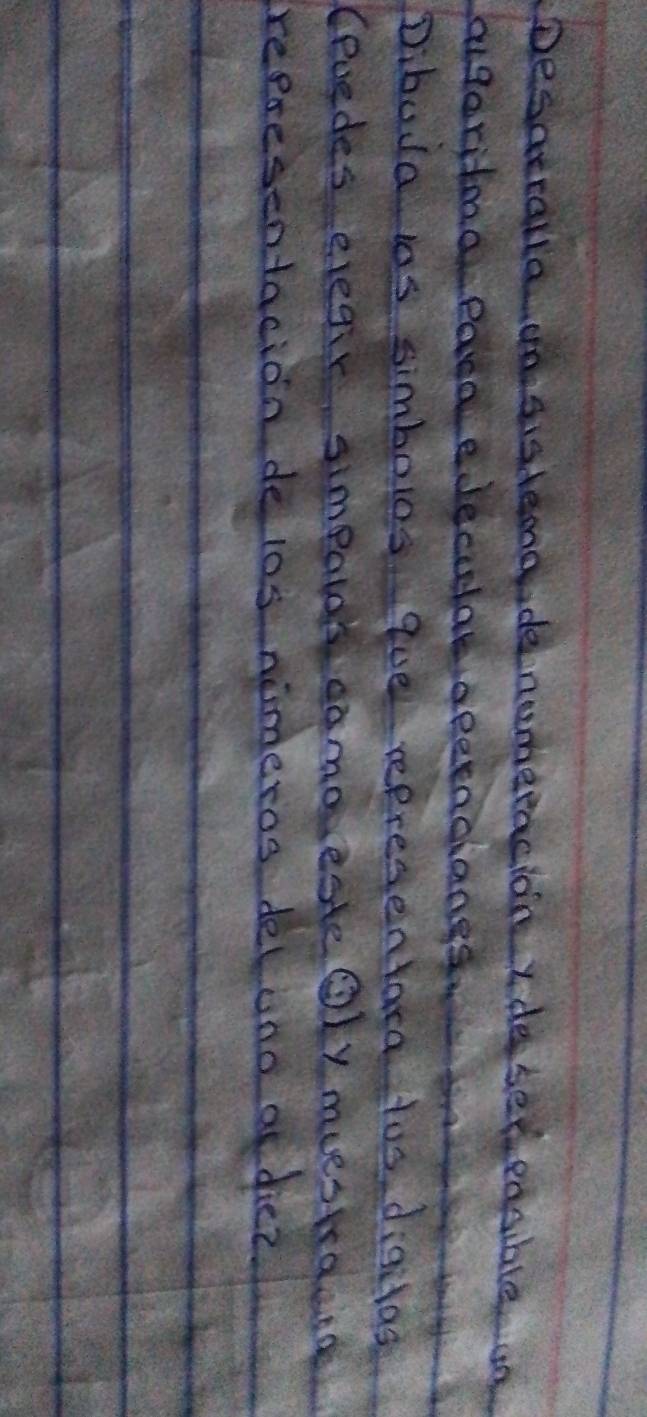 Desarrolla un sistema de numeración y de ser posible un
algoritmo para ejecutar operaciones.
Dibuja los simbolos que representara tus digitos
(Puedes elegir simbolos como este ☺) y muestra la
representación de los números del uno al diez.